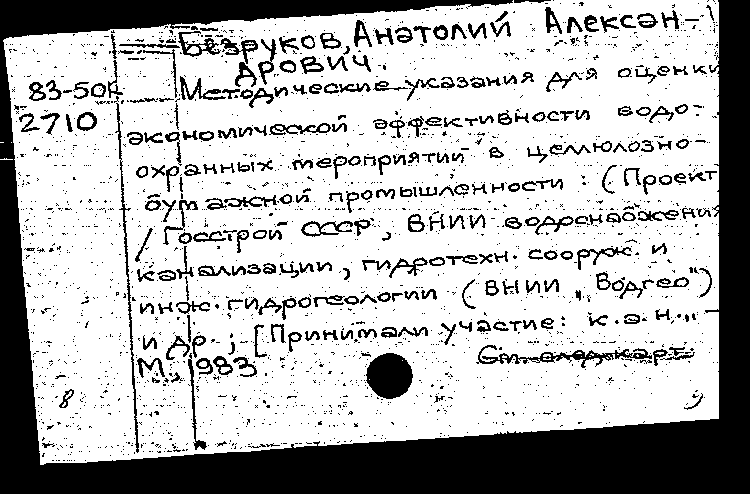 Безруков, Анатолий Алексан-
дрович.
83-50к
2710
Методические указания для оценки
экономической эффективности водо-
охранных мероприятий в целлюлозно-
бумажной промышленности : (Проект
/ Госстрой СССР, ВНИИ водоснабжения
канализации, гидротехн. сооруж. и
инж. гидрогеологии (ВНИИ „Водгео")
и др. ; [Принимали участие: к.э.н.,, –
М., 1983
См. след. карт.
8
9